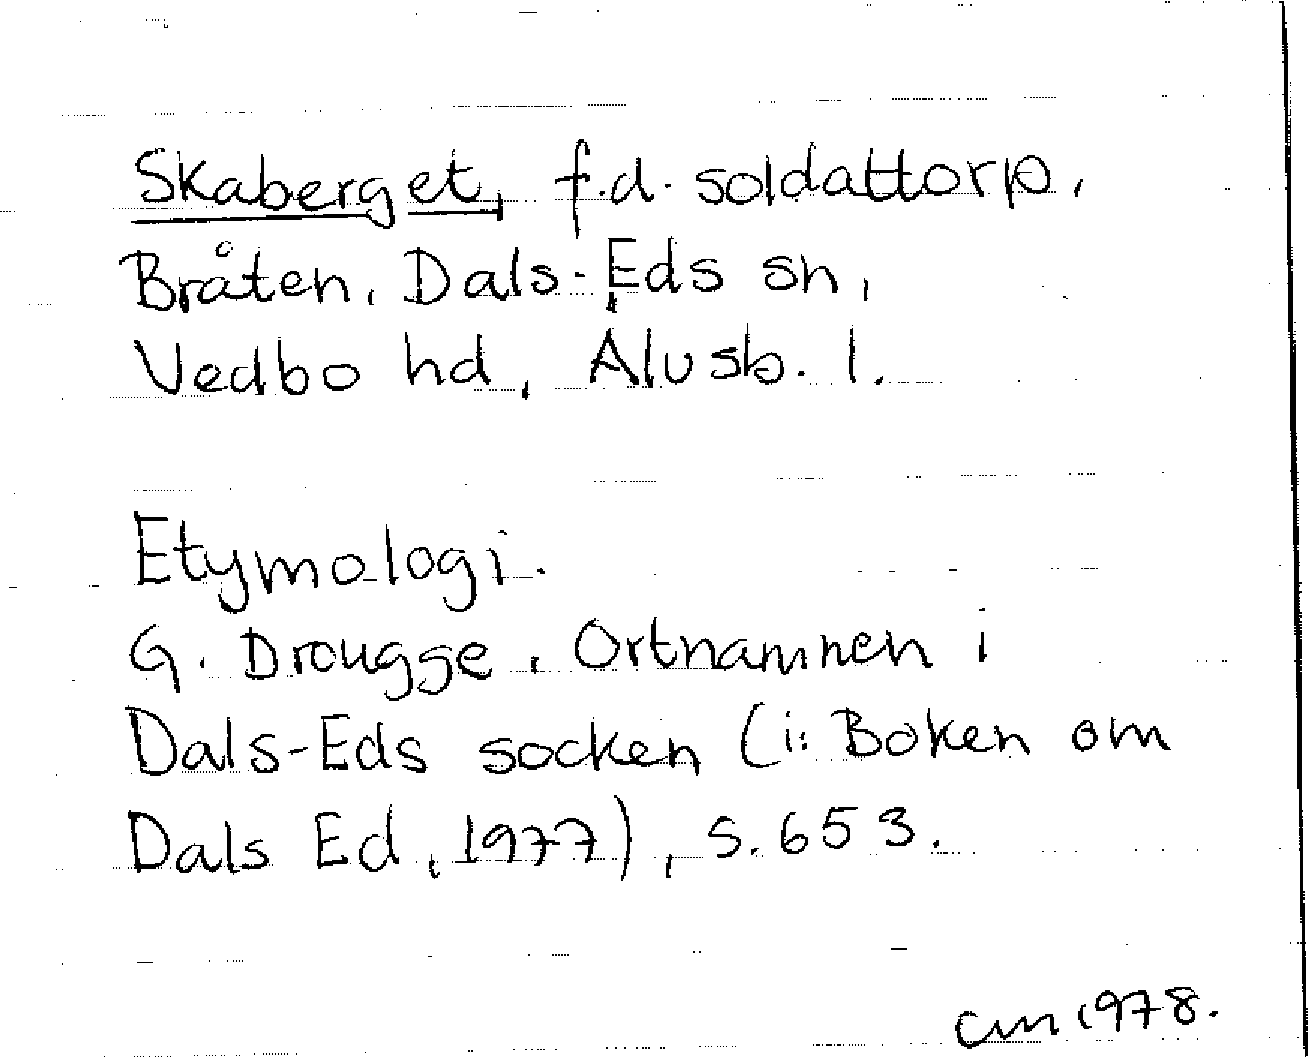 Skaberget, f.d. soldattorp,
Bråten, Dals-Eds sn,
Vedbo hd, Älvsb. l.
Etymologi.
G. Drougge, Ortnamnen i
Dals-Eds socken (i: Boken om
Dals Ed, 1977), s. 653.
cm 1978.